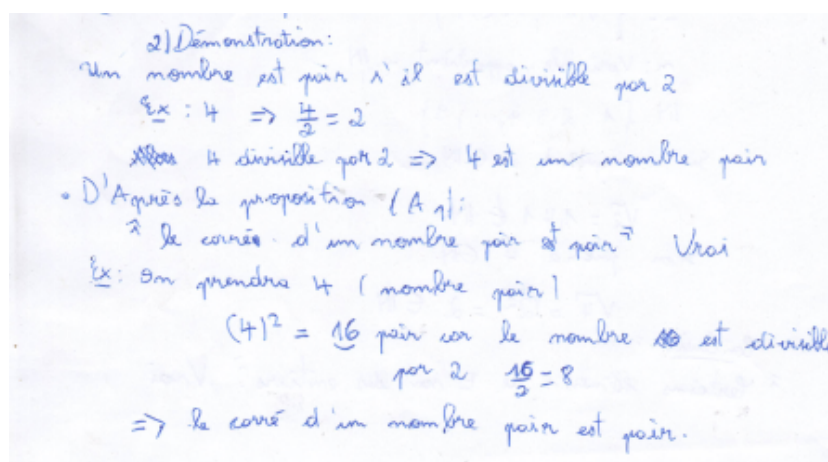 2) Démonstration:
Un nombre est pair s'il est divisible par 2
Ex : 4 => 4/2 = 2
4 divisible par 2 => 4 est un nombre pair
• D'Après la proposition (A 1):
" le carré d'un nombre pair est pair " Vrai
Ex: on prendra 4 (nombre pair)
(4)² = 16 pair car le nombre est divisible
par 2 16/2 = 8
=> le carré d'un nombre pair est pair.